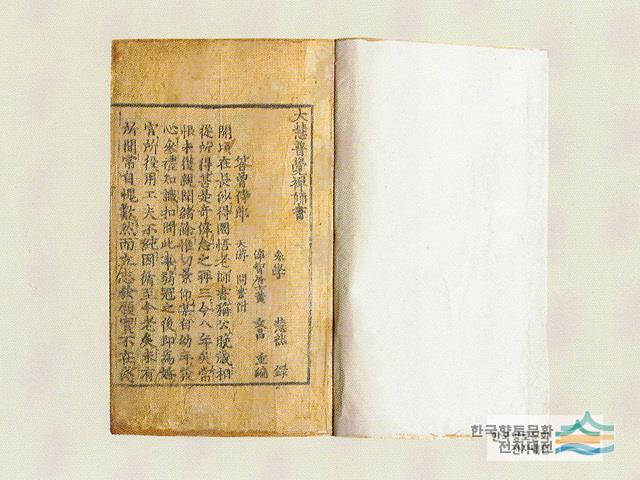 大慧普覺禪師書
參學 慧然 錄
淨智居士黃 文昌 重編
答曾侍郎 天游 問書附
開頃在長沙得圓悟老師書稱公晩歲相
從所得甚是奇偉念之再三今八年矣常
恨未獲親聞緒餘惟切景仰某自幼年發
心參禮知識扣問此事弱冠之後即爲婚
宦所役用工夫不純因循至今老矣未有
所聞常自愧歎然而立志發願實不在淺
한국향토문화
전자대전